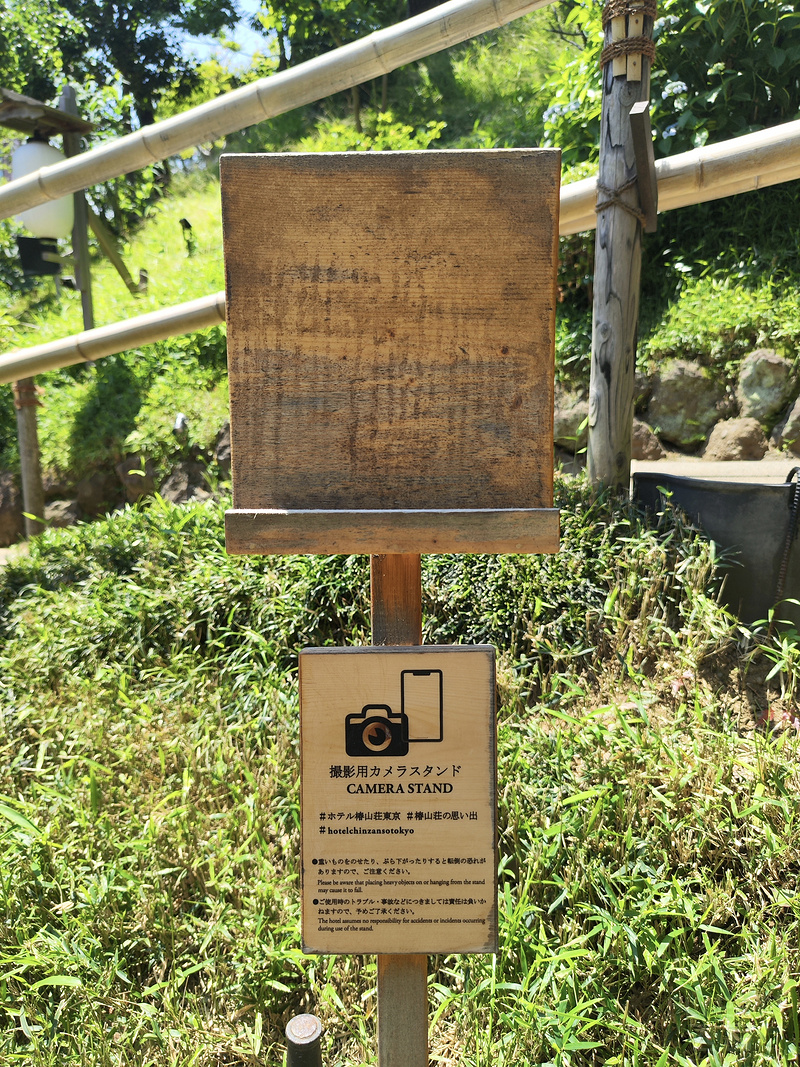 撮影用カメラスタンド
CAMERA STAND
#ホテル椿山荘東京 #椿山荘の思い出
#hotelchinzansotokyo
●重いものをのせたり、ぶら下がったりすると転倒の恐れが
ありますので、ご注意ください。
Please be aware that placing heavy objects on or hanging from the stand
may cause it to fall.
●ご使用時のトラブル・事故などにつきましては責任は負いか
ねますので、予めご了承ください。
The hotel assumes no responsibility for accidents or incidents occurring
during use of the stand.